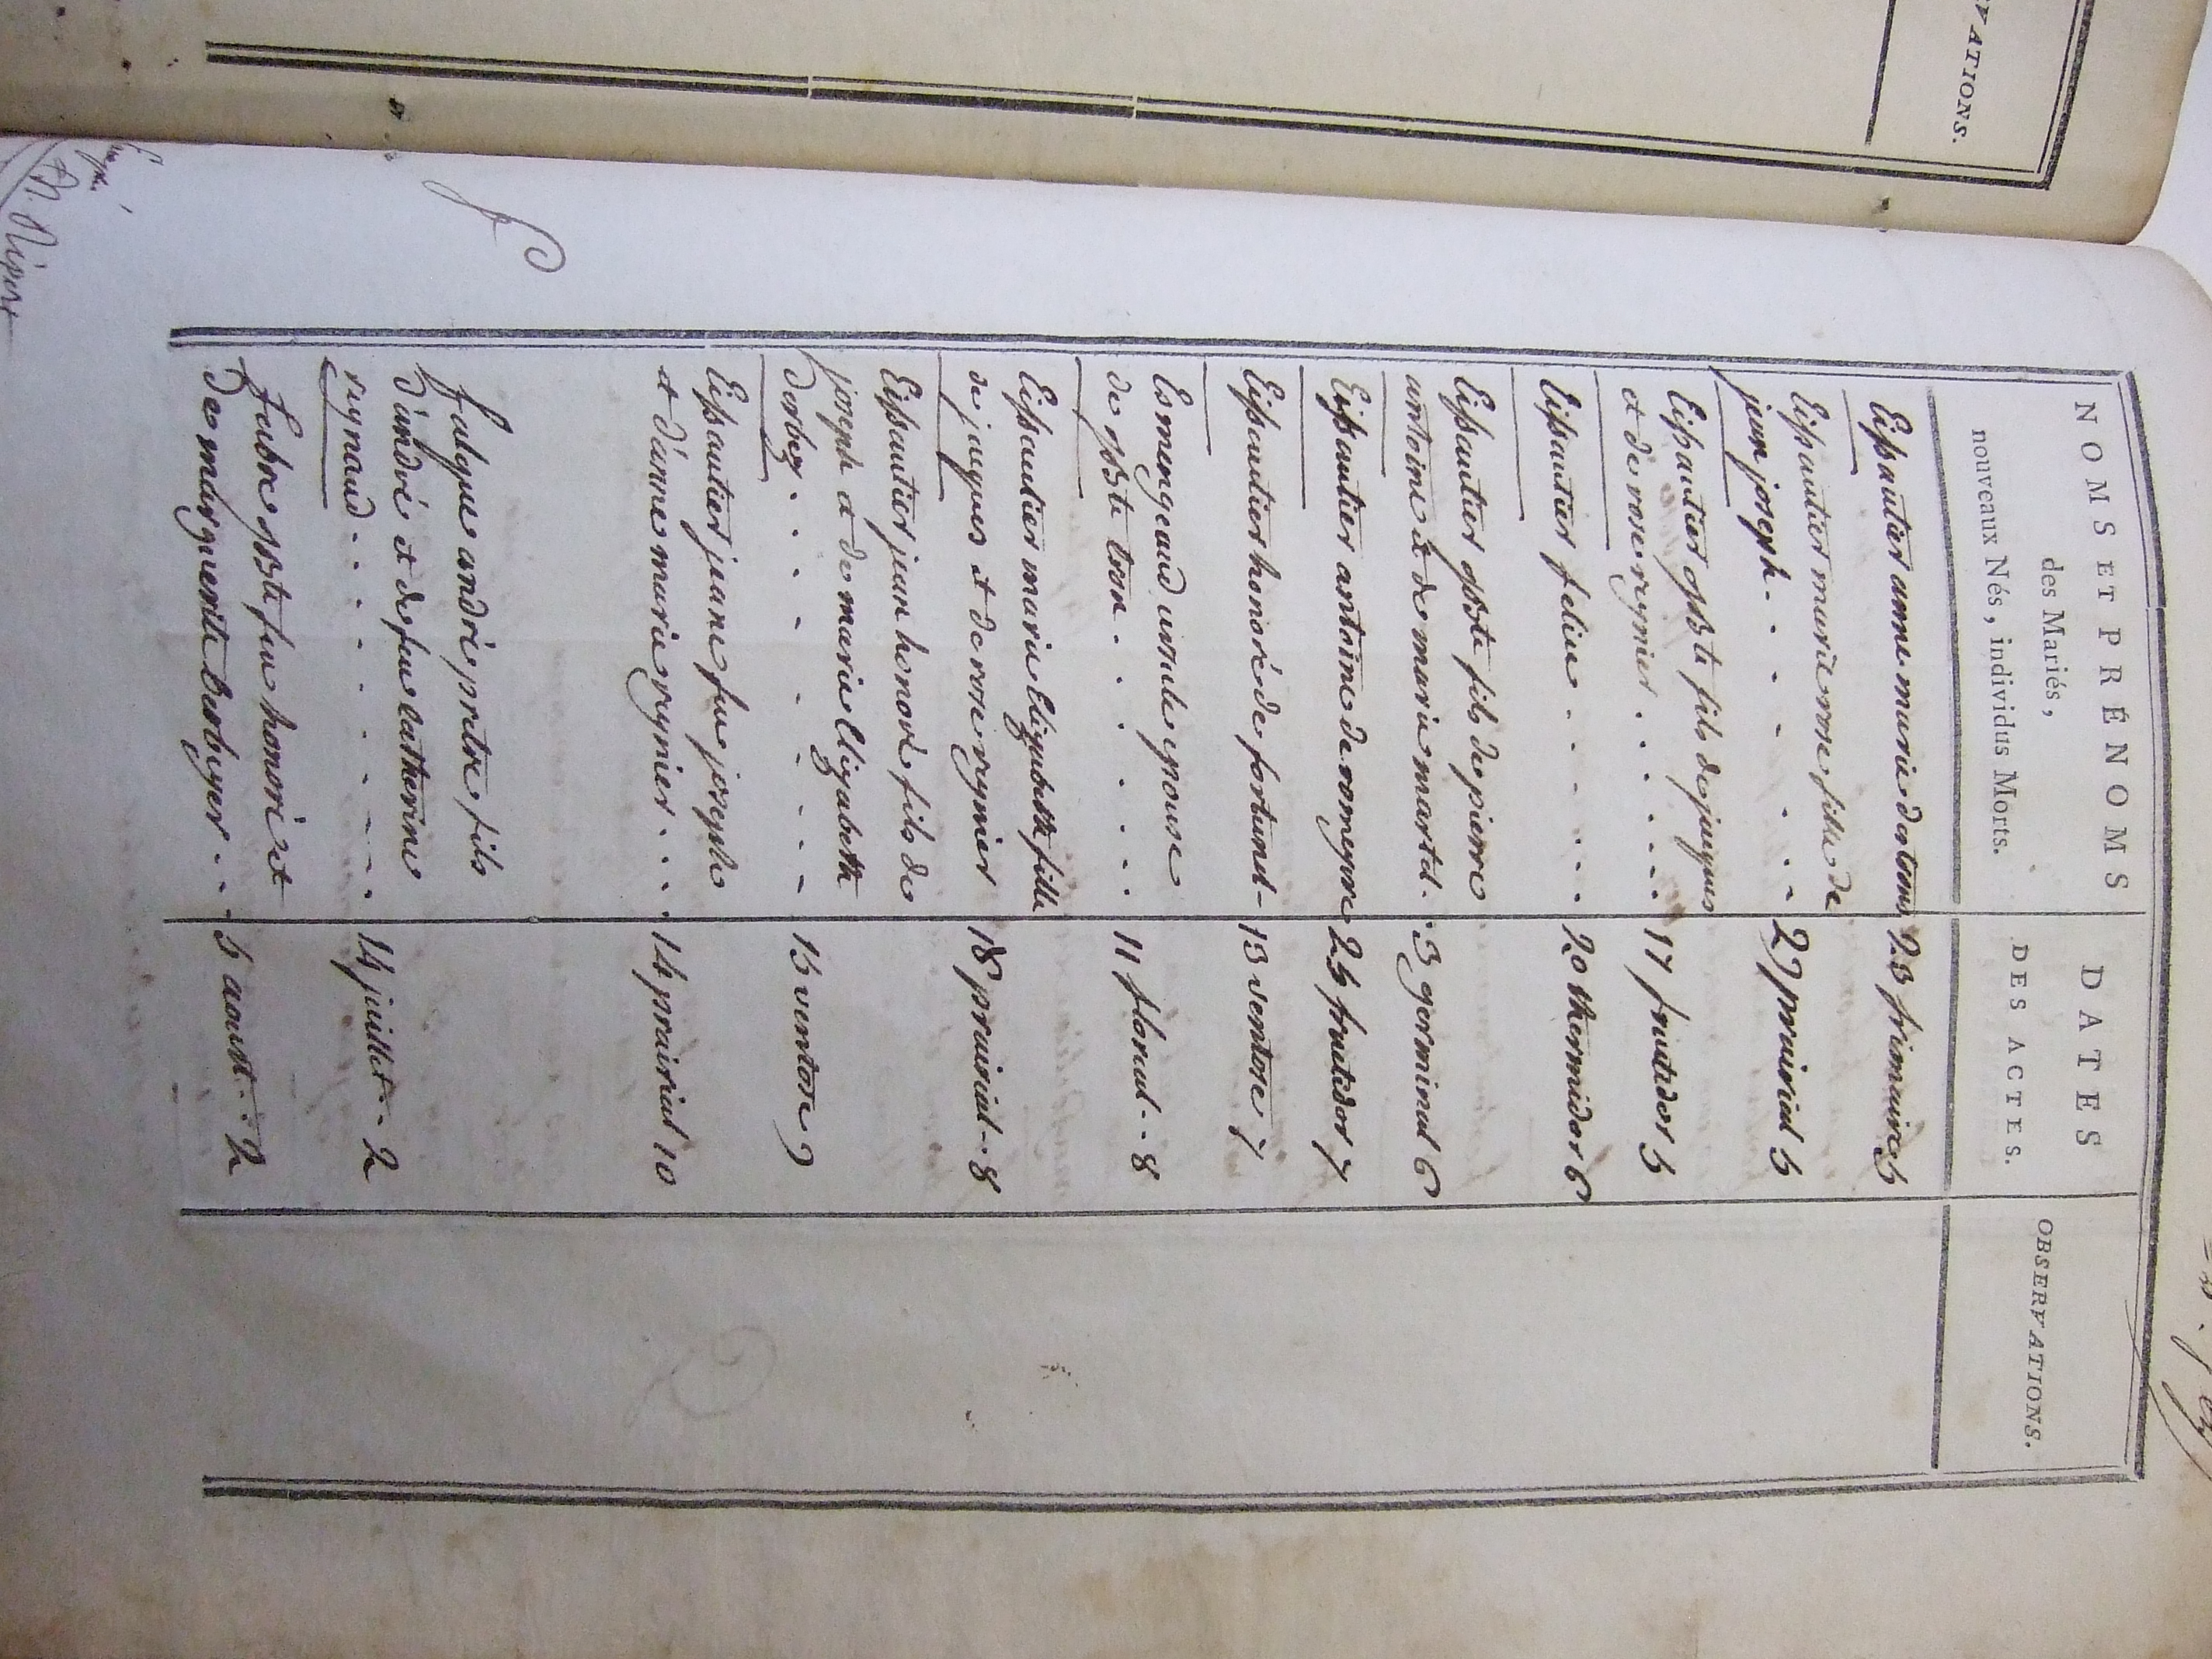 RVATIONS.
NOMS ET PRÉNOMS
des Mariés,
nouveaux Nés, individus Morts.
DATES
DES ACTES.
OBSERVATIONS.
Eissautier anne marie 23 frimaire 5
Eissautier marie rose fille de
jean joseph . . . . . . 27 prairial 5
Eissautier jbte fils de jaques
et de rose reynier . . . . . 17 fructidor 5
Eissautier felicu . . . . . 20 thermidor 6
Eissautier jbte fils de pierre
antoine et de marie martel . 3 germinal 6
Eissautier antoine de romegue 25 fructidor 7
Eissautier honoré de fortunat - 13 ventose 7
Esmengeaud ursule epouse
de jbte . . . . . . 11 floreal - . 8
Eissautier marie elizabeth fille
de jaques et de rose reynier 18 prairial - . 8
Eissautier jean honoré fils de
joseph et de marie elizabeth
dorbes . . . . . . . . 15 ventose 9
Eissautier jeane feu joseph
et d'anne marie reynier . . . 14 prairial 10
f
falque andré pretre fils
d'andré et de feue catherine
reynaud . . . . . . . . 14 juillet - 2
fabre jbte feu honoré et
de marguerite berbeyer . . . 5 aoust . . 2